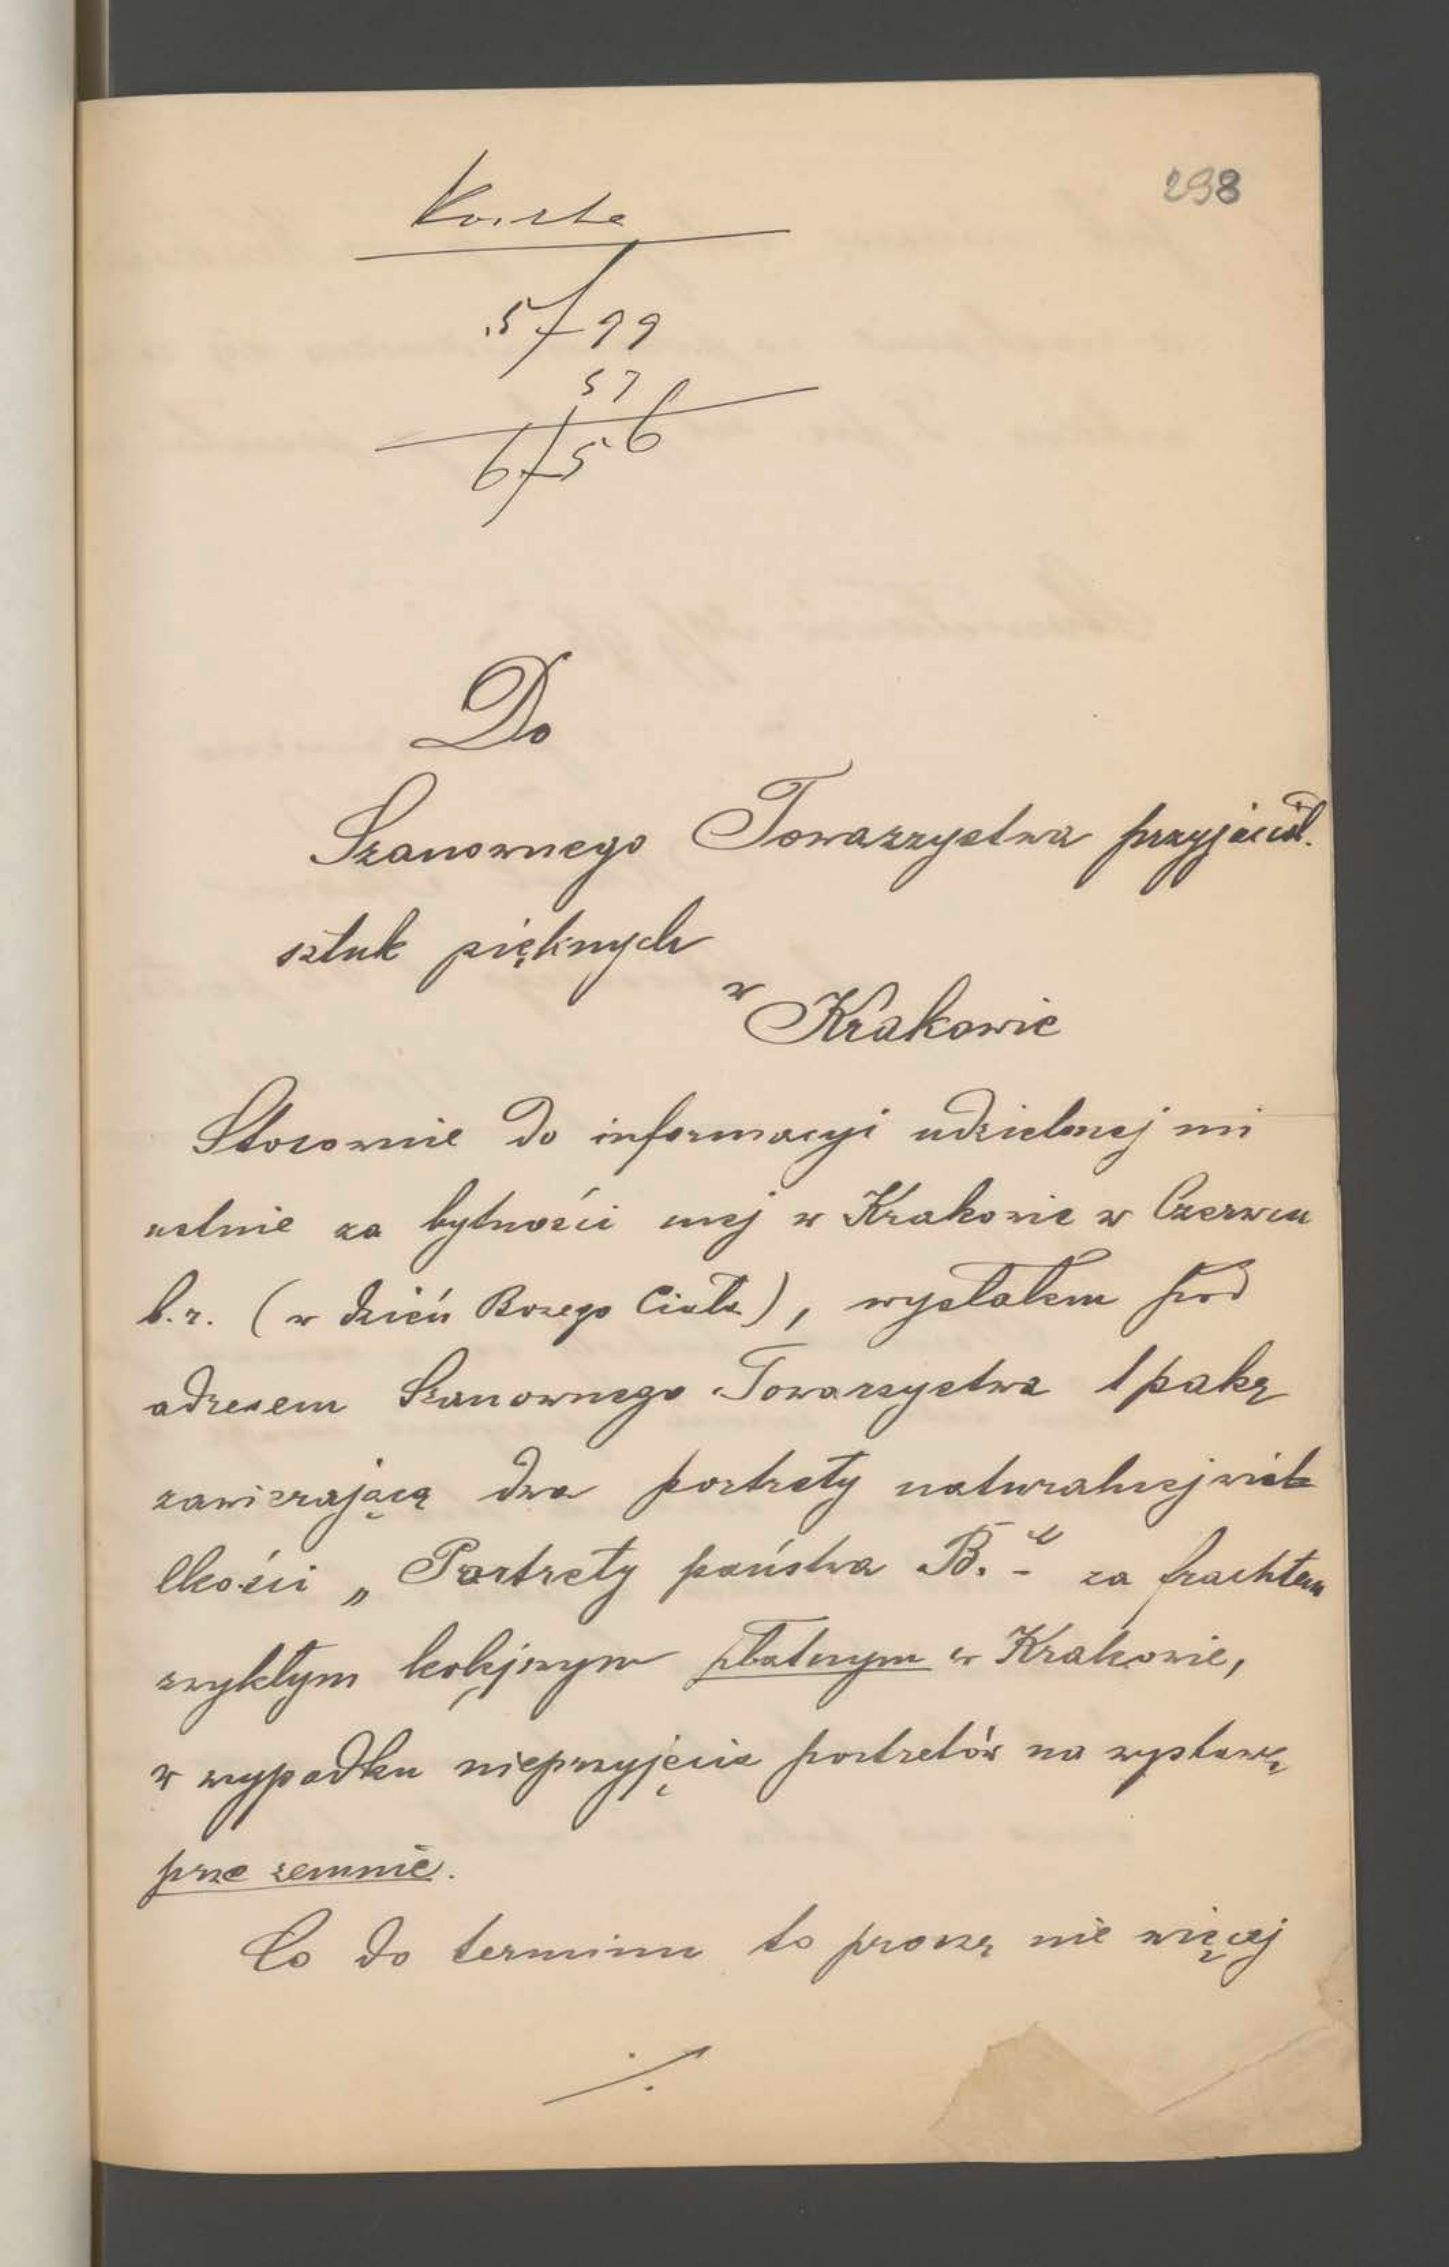 298
Koszta
5/99
57
6/56
Do
Szanownego Towarzystwa przyjaciół.
sztuk pięknych
w Krakowie
Stosownie do informacyi udzielonej mi
ustnie za bytności mej w Krakowie w Czerwcu
b.r. (w dzień Bożego Ciała), wysłałem pod
adresem Szanownego Towarzystwa 1 pakę
zawierającą dwa portrety naturalnej wiel
lkości „Portrety państwa B.“ - za frachtem
zwykłym kolejnym płatnym w Krakowie,
w wypadku nieprzyjęcia portretów na wystawę
prze zemnie.
Co do terminu to proszę nie więcej
./.